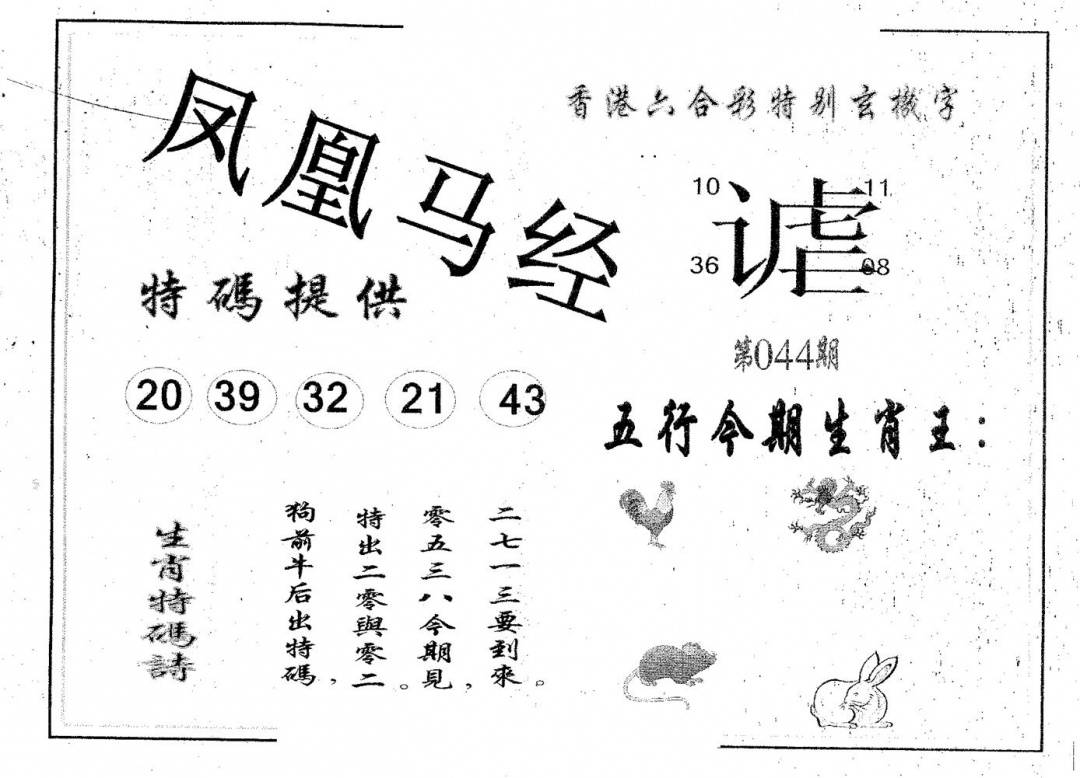 凤凰马经
香港六合彩特别玄機字
10 11
谑
36 08
特碼提供
第044期
20 39 32 21 43
五行今期生肖王：
生肖特碼詩
狗前牛后出特碼，
特出二零與零二。
零五三八今期見，
二七一三要到來。